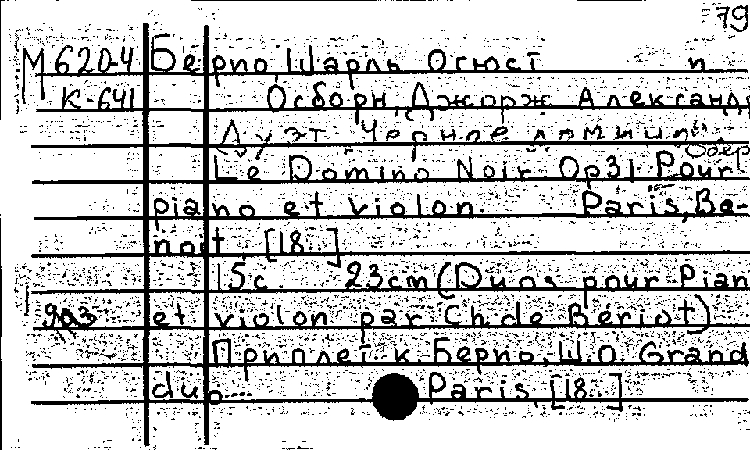 79
М620-4 Берио, Шарль Огюст п
К-641 Осборн, Джордж Александр
Дуэт Черное домино. Обер
Le Domino Noir Op31 Pour
piano et violon. Paris, Be-
noit, [18..]
15c. 23cm (Duos pour Pian
et violon par Ch. de Bériot)
Приплет к Берио, Ш.О. Grand
duo... Paris, [18..]